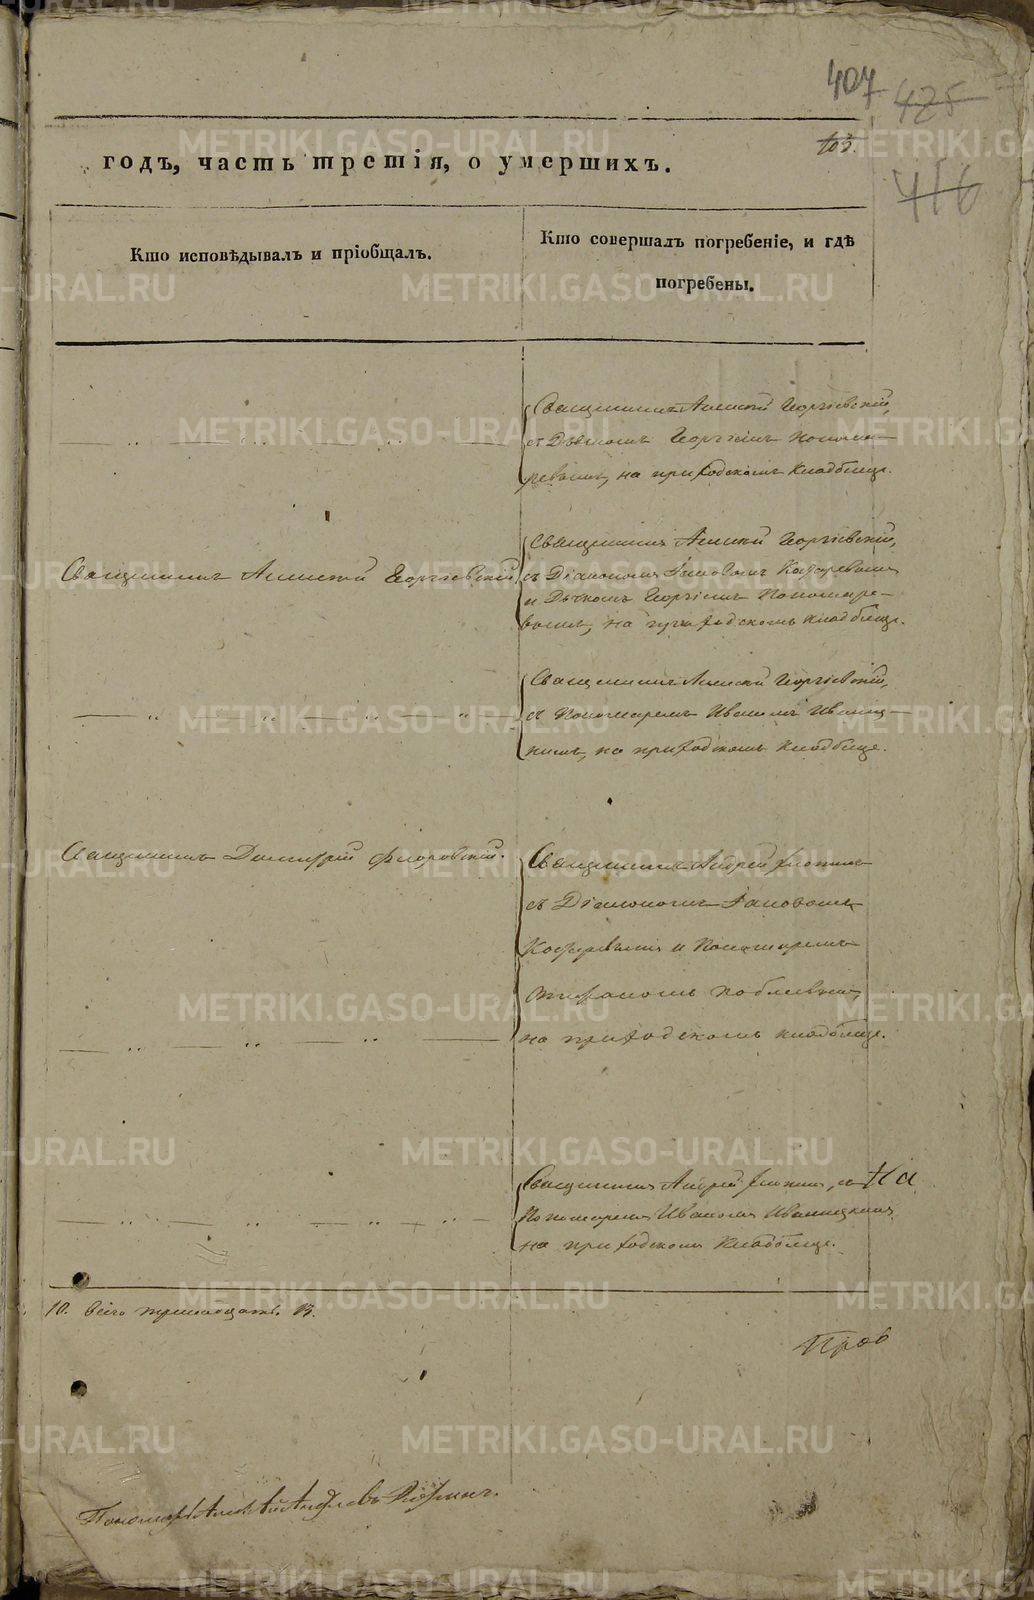 407
425
103.
416
годъ, часть третія, о умершихъ.
Кто исповѣдывалъ и пріобщалъ.
Кто совершалъ погребеніе, и гдѣ
погребены.
Священникъ Алексѣй Георгіевскій,
съ Дьячкомъ Георгіемъ Понома-
ревымъ, на приходскомъ кладбищѣ.
Священникъ Алексѣй Георгіевскій.
Священникъ Алексѣй Георгіевскій,
съ Діакономъ Іаковомъ
и Дьячкомъ Георгіемъ Пономаре-
вымъ, на приходскомъ кладбищѣ.
Священникъ Алексѣй Георгіевскій,
съ Пономаремъ Иваномъ Иваниц-
кимъ, на приходскомъ кладбищѣ.
Священникъ Димитрій Флоровскій.
Священникъ Андрей
съ Діакономъ Іаковомъ
и Пономаремъ
на приходскомъ кладбищѣ.
Священникъ Андрей съ
Пономаремъ Иваномъ Иваницкимъ
на приходскомъ кладбищѣ.
На
10. всего тринадцать 13.
Пров
Пономарь
METRIKI.GASO-URAL.RU